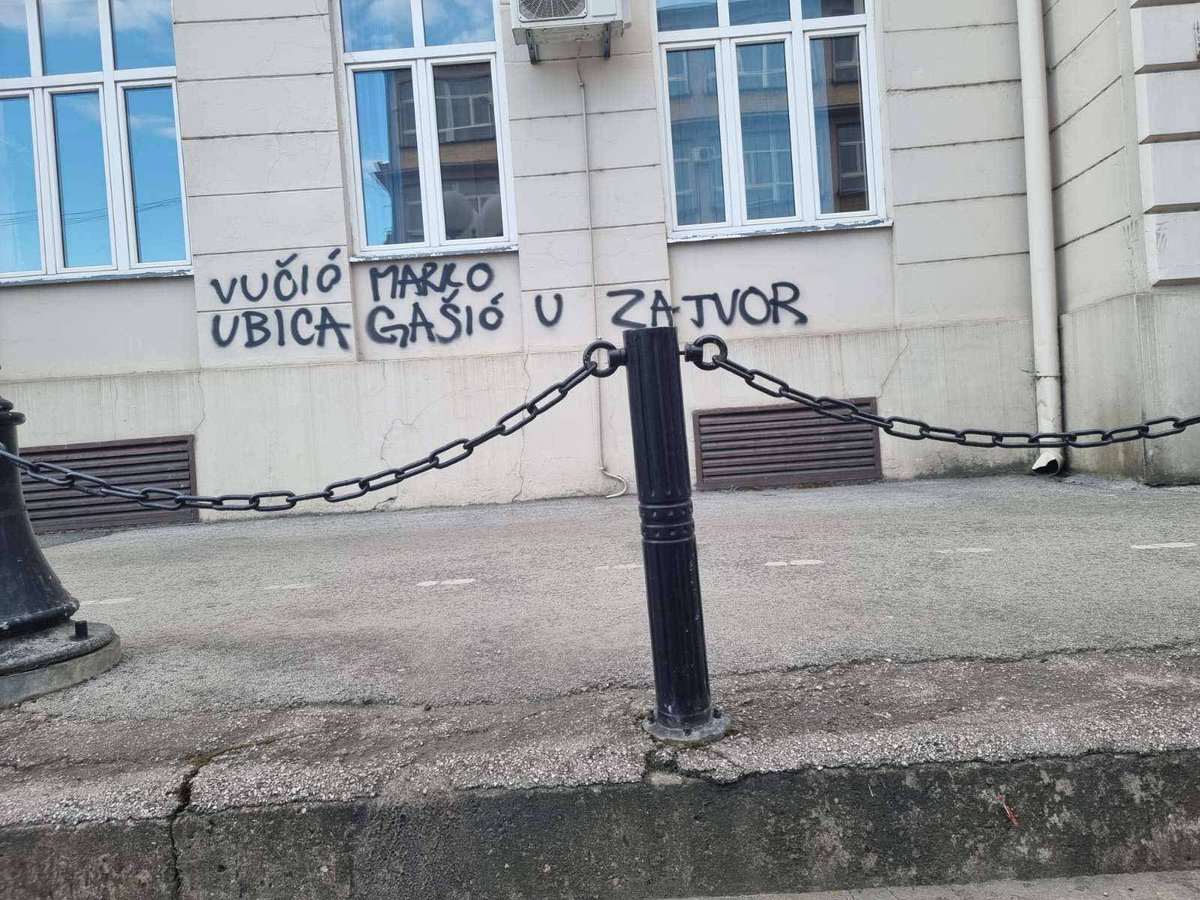 VUČIĆ MARKO
UBICA GAŠIĆ U ZATVOR